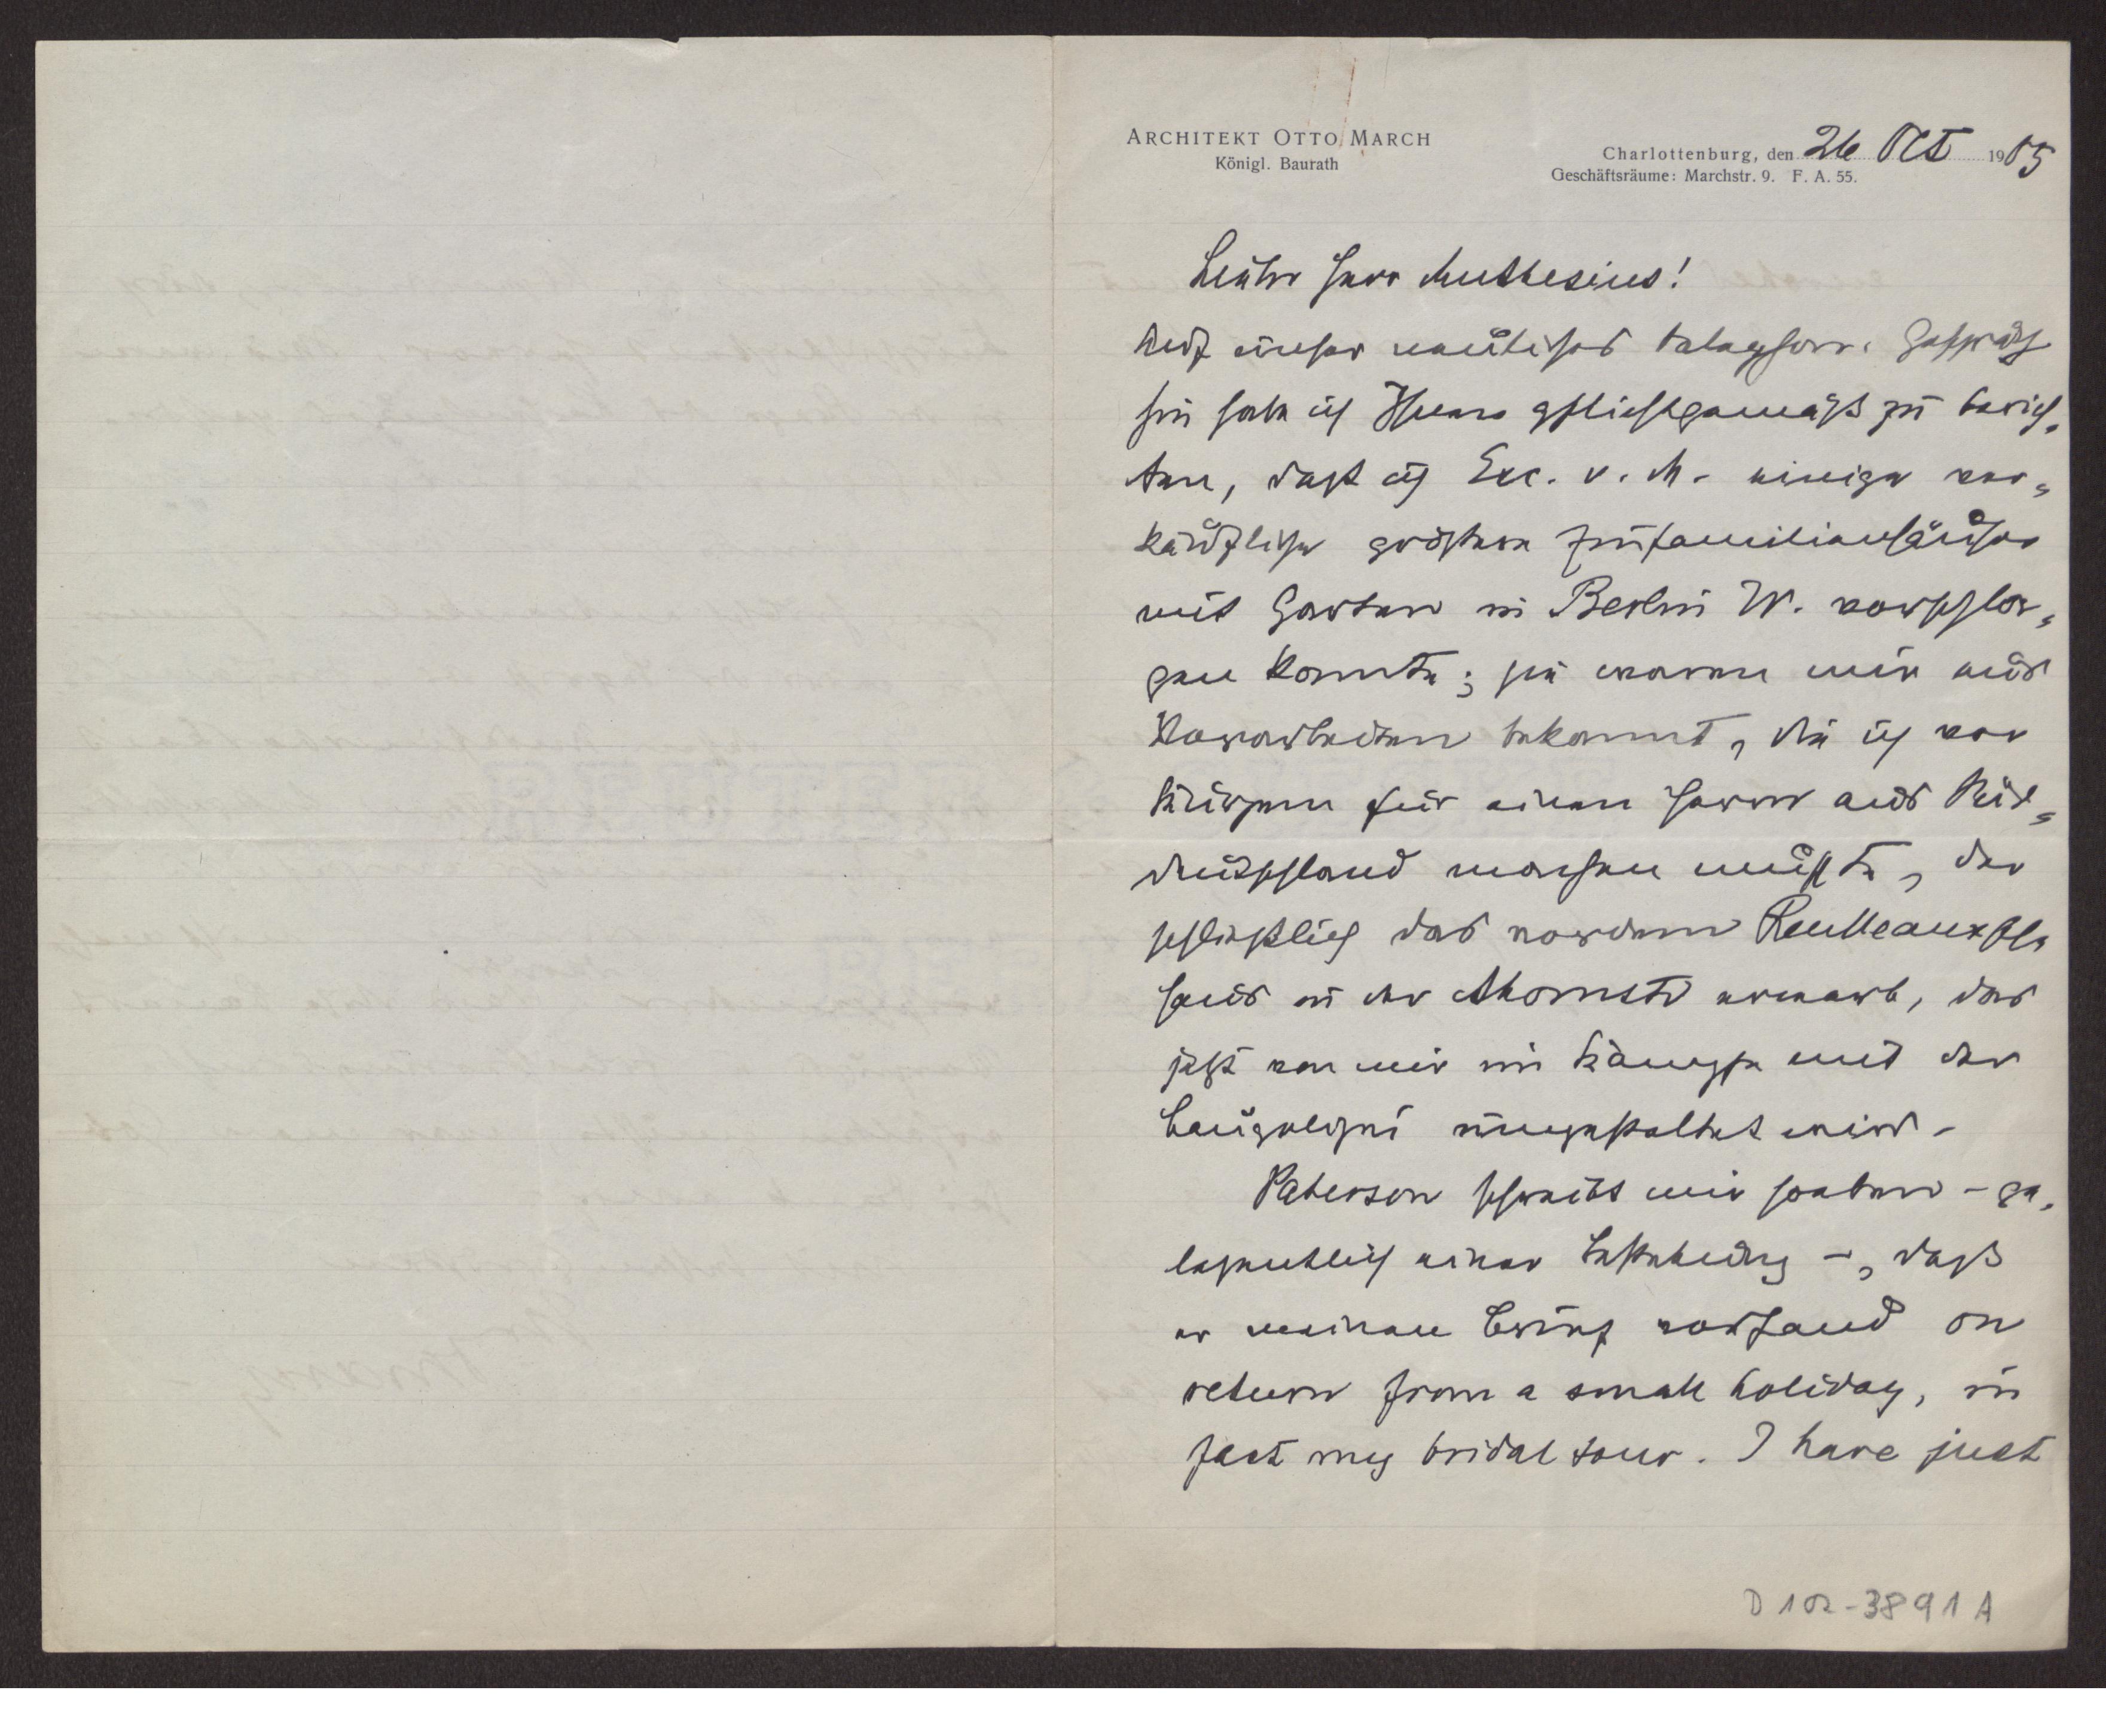 ARCHITEKT OTTO MARCH
Königl. Baurath
Charlottenburg, den 26 Oct 1905
Geschäftsräume: Marchstr. 9. F. A. 55.
Lieber Herr Muthesius!
Auf unser neuliches telephon. Gespräch
hin habe ich Ihnen pflichtgemäß zu berich-
ten, daß ich Exc. v. M. einige ver-
käufliche größere Einfamilienhäuser
mit Garten in Berlin W. vorschla-
gen konnte; sie waren mir aus
Vorarbeiten bekannt, die ich vor
kurzem für einen Herrn aus Süd-
deutschland machen mußte, der
schließlich das vordem Reulleauxsche
Haus in der Ahornstr erwarb, das
jetzt von mir im Kampfe mit der
Baupolizei umgestaltet wird.
Paterson schreibt mir soeben – ge-
legentlich einer Bestellung –, daß
er meinen Brief vorfand on
return from a small holiday, in
fact my bridal tour. I have just
D 102-3891 A